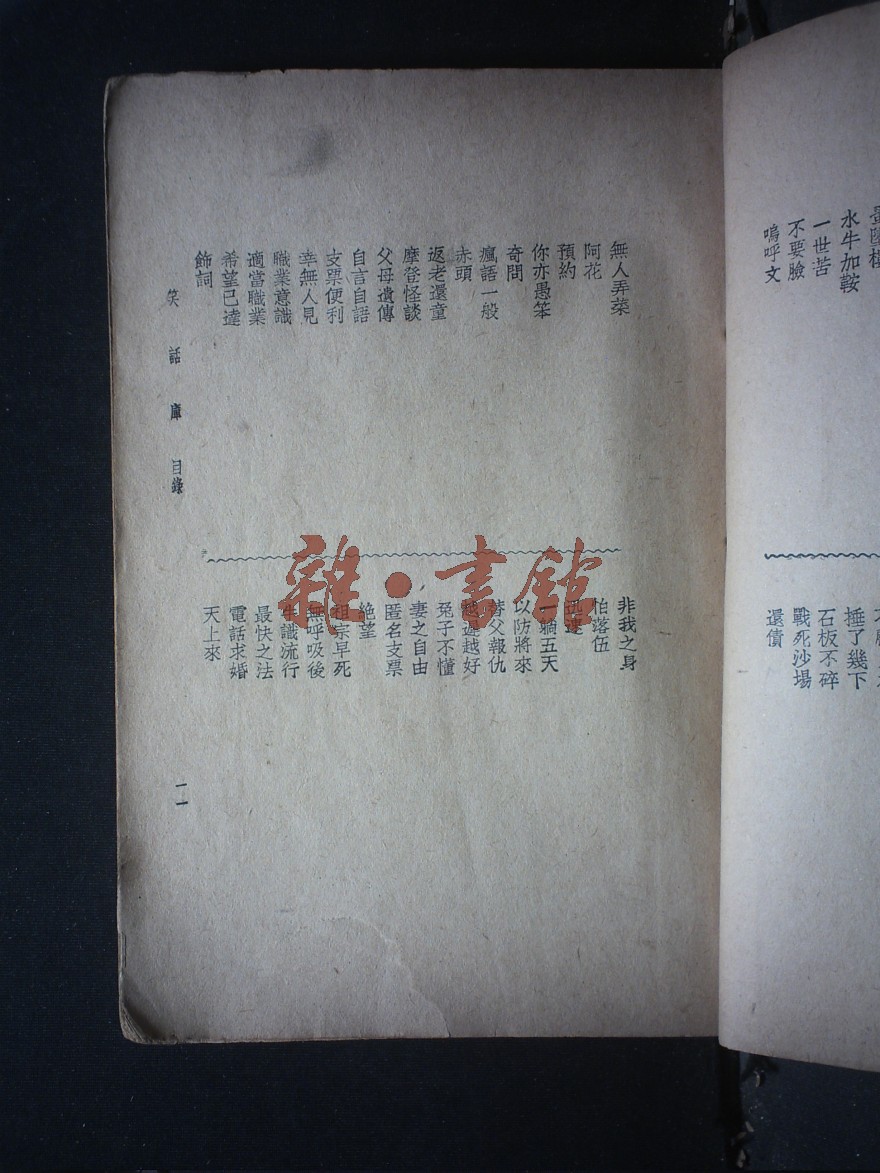 水牛加鞍
一世苦
不要臉
嗚呼文
捶了幾下
石板不碎
戰死沙場
還債
無人弄菜
阿花
預約
你亦愚笨
奇問
瘋語一般
赤頭
返老還童
摩登怪談
父母遺傳
自言自語
支票便利
幸無人見
職業意識
適當職業
希望已達
飾詞
非我之身
怕落伍
迅速
一躺五天
以防將來
替父報仇
越遲越好
兔子不懂
妻之自由
匿名支票
絕望
祖宗早死
無呼吸後
牛識流行
最快之法
電話求婚
天上來
笑話庫 目錄
一一
雜·書館